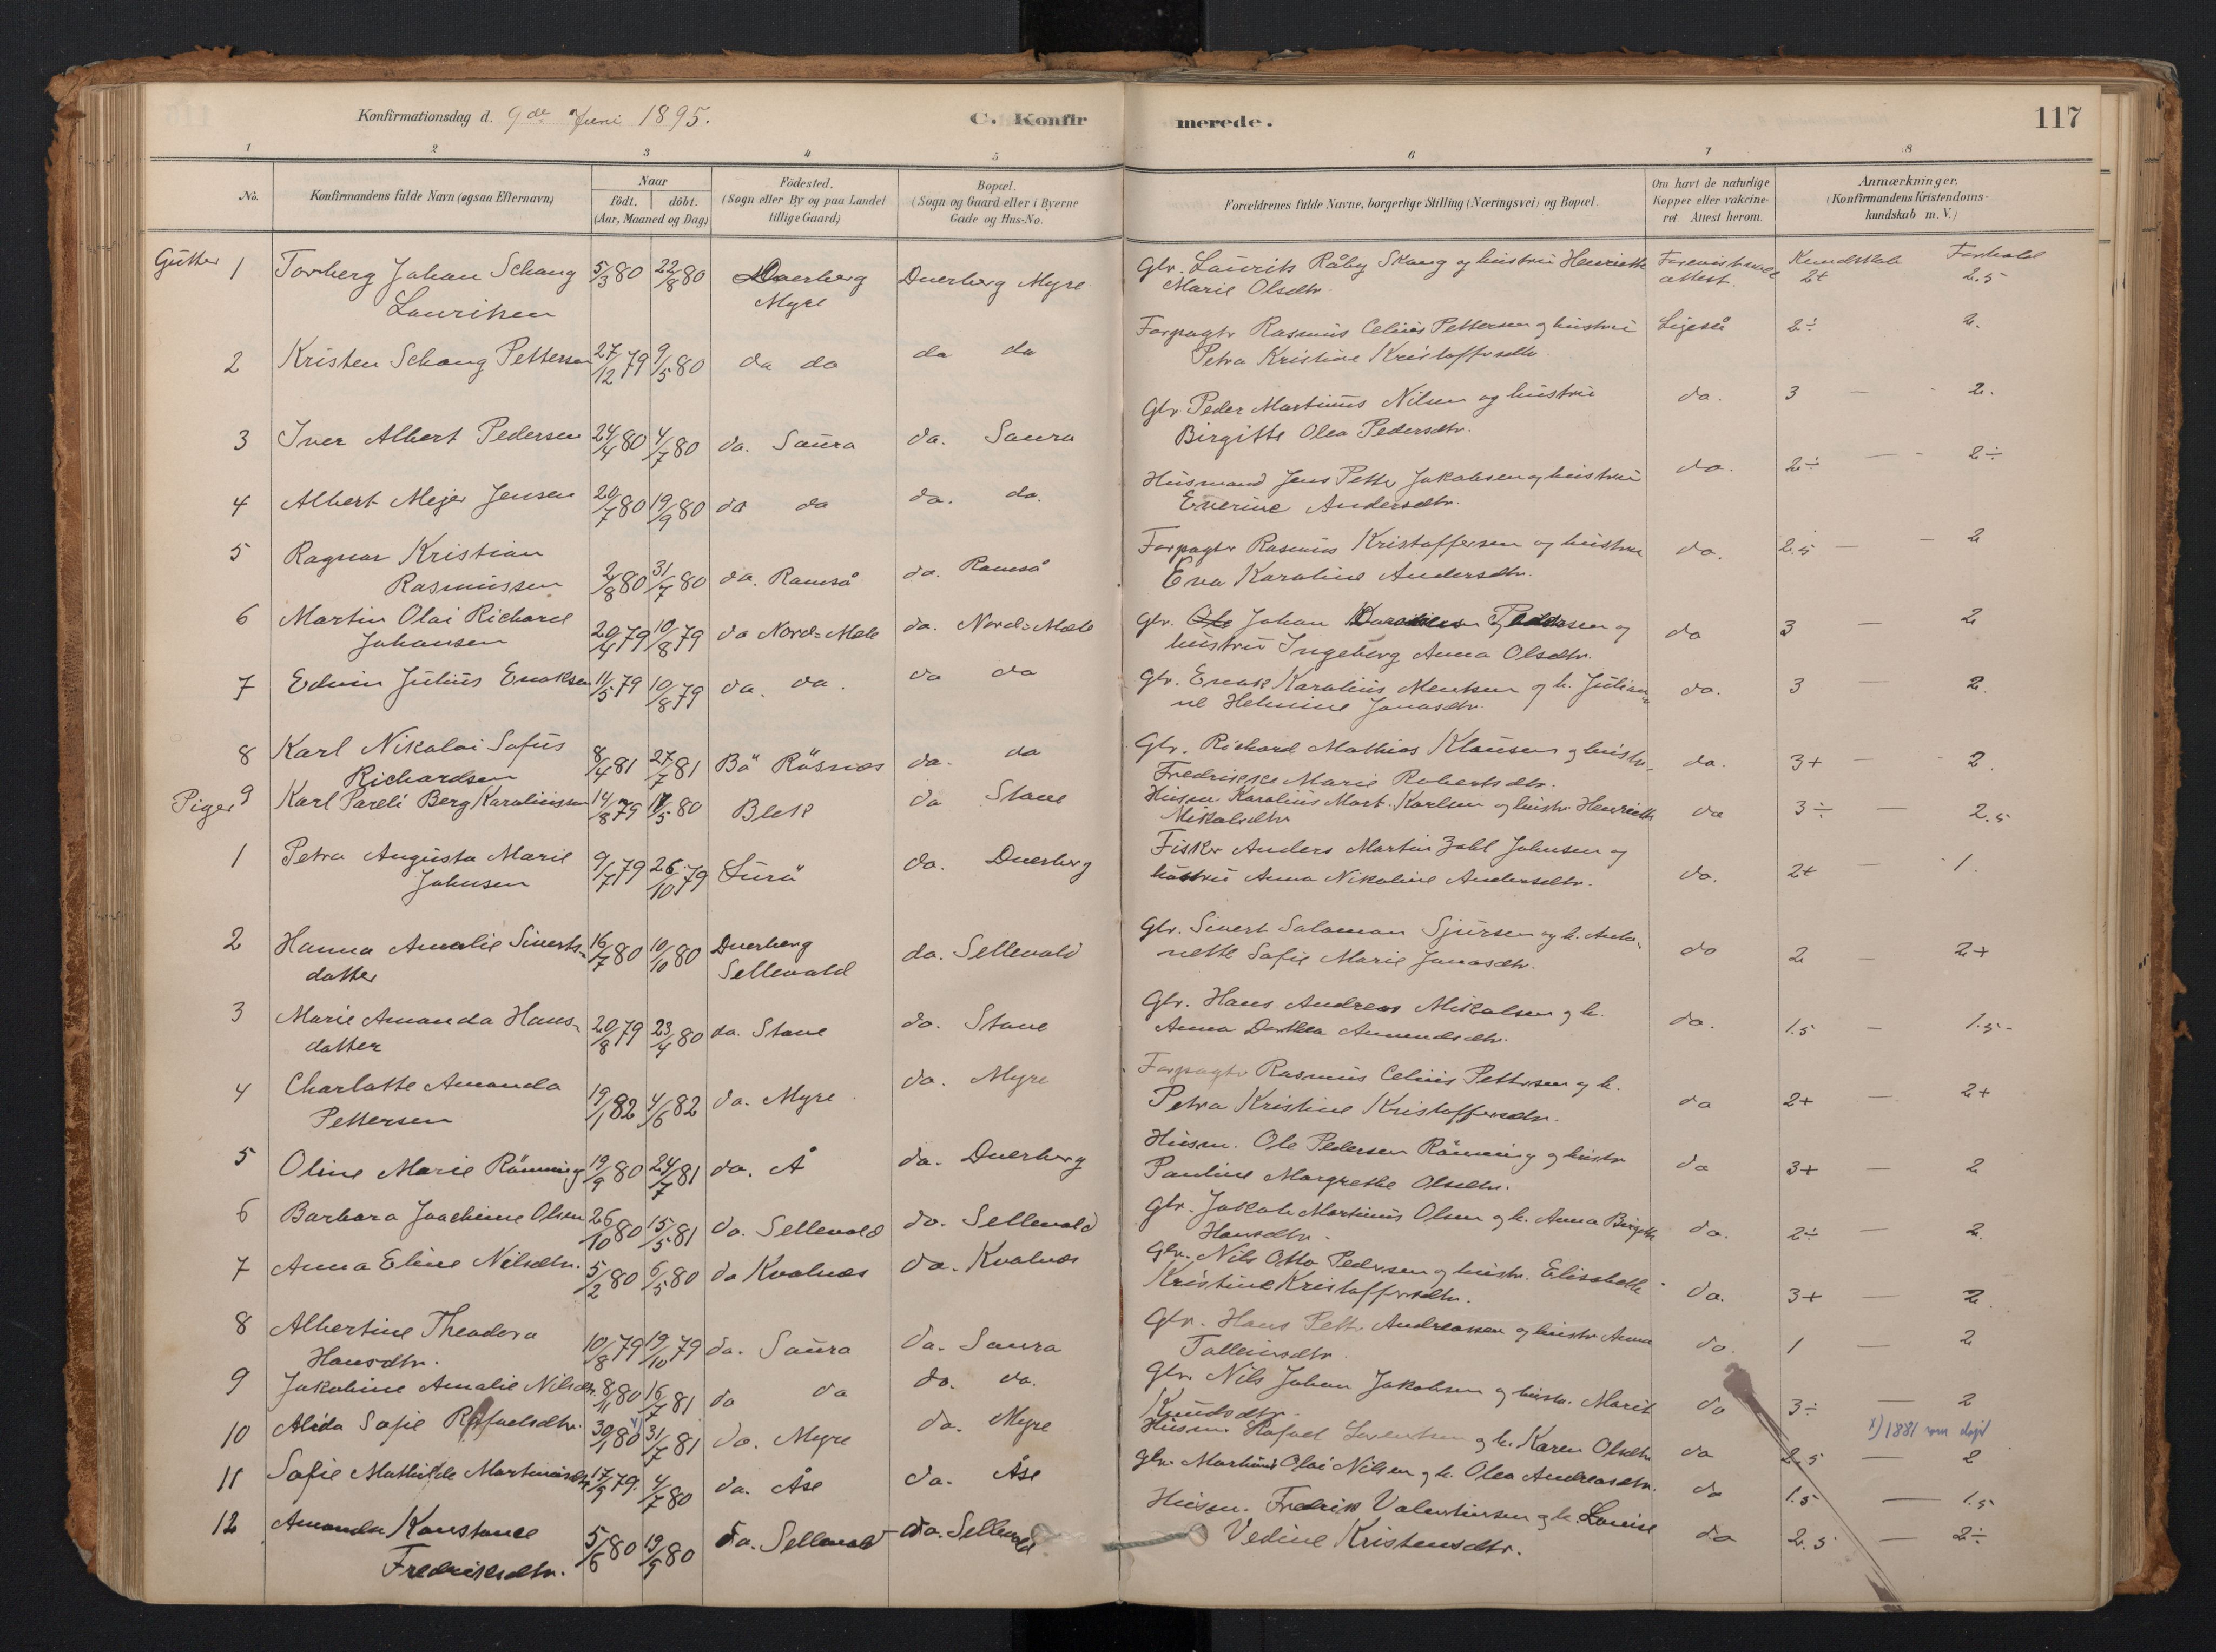 Konfirmationsdag d. 9de Juni 1895.
C. Konfirmerede.
117
1 2 3 4 5 6 7 8
No.
Konfirmandens fulde Navn (ogsaa Efternavn)
Naar
födt. döbt.
(Aar, Maaned og Dag)
Födested.
(Sogn eller By og paa Landet
tillige Gaard)
Bopæl.
(Sogn og Gaard eller i Byerne
Gade og Hus-No.
Forældrenes fulde Navne, borgerlige Stilling (Næringsvei) og Bopæl.
Om havt de naturlige
Kopper eller vakcine-
ret. Attest herom.
Anmærkninger.
(Konfirmandens Kristendoms-
kundskab m. V.)
Gutter
1 Torberg Johan Schang 5/3 80 22/8 80 Dverberg Dverberg Myre Gbr. Laurits Råby Skang og hustru Henriette Kundskab Forhold
Lauritsen Myre Marie Olsdtr. attest. 2+ 2.5
2 Kristen Schang Pettersen 27/12 79 9/5 80 do do do do Forpagtr Rasmus Celius Pettersen og hustru Ligeså 2÷ 2.
Petra Kristine Kristoffersdtr
3 Iver Albert Pedersen 24/4 80 4/7 80 do. Saura do. Saura Gbr. Peder Martinus Nilsen og hustru do. 3 — - 2.
Birgitte Olea Pedersdtr.
4 Albert Mejer Jensen 20/7 80 19/9 80 do do do. do. Husmand Jens Petter Jakobsen og hustru do. 2÷ — - 2÷
Enerine Andersdtr.
5 Ragnar Kristian Forpagtr Rasmus Kristoffersen og hustru do. 2.5 — - 2
Rasmussen 2/8 80 31/7 80 do. Ramså do. Ramså Eva Karoline Andersdtr.
6 Martin Olai Richard Gbr. Ole Johan Pedersen og do 3 — 2
Johansen 20/4 79 10/8 79 do Nord=Mæle do. Nord=Mæle hustru Ingeborg Anna Olsdtr.
7 Edvin Julius Enoksen 11/5 79 10/8 79 do. do. do do Gbr. Enok Karolius Mentsen og h. Julian- do. 3 — 2.
ne Helmine Jonasdtr.
8 Karl Nikolai Sofus 8/4 81 27/7 81 Bö Rösnes do. do Gbr. Richard Mathias Klausen og hustr. do. 3+ — 2.
Richardsen Fredrikke Marie Robertsdtr.
9 Karl Pareli Berg Karoliussen 14/8 79 17/5 80 Blek do Stave Husm Karolius Mart. Karlsen og hustr. Henriette do 3÷ — 2.5
Mikalsdtr
Piger
1 Petra Augusta Marie 9/7 79 26/10 79 Lurö do. Dverberg Fiskr Anders Martin Zahl Johnsen og do. 2+ — 1.
Johnsen hustru Anna Nikoline Andersdtr.
2 Hanna Amalie Siverts- 16/7 80 10/10 80 Dverberg do. Sellevold Gbr. Sivert Salamon Sjursen og h. Anto- do 2 — 2+
datter Sellevold nette Sofie Marie Jonasdtr.
3 Marie Amanda Hans- 20/8 79 23/4 80 do. Stave do. Stave Gbr. Hans Andreas Mikalsen og h. do. 1.5 — 1.5-
datter Anna Dorthea Amundsdtr.
4 Charlotte Amanda 19/1 82 4/6 82 do. Myre do. Myre Forpagtr Rasmus Celius Pettersen og h. do 2+ — 2+
Pettersen Petra Kristine Kristoffersdtr.
5 Oline Marie Rönning 19/9 80 24/7 81 do. Å do. Dverberg Husm. Ole Pedersen Rönning og hustr do 3+ — 2
Pauline Margrethe Olsdtr.
6 Barbara Joachime Olsen 26/10 80 15/5 81 do. Sellevold do. Sellevold Gbr. Jakob Martinus Olsen og h. Anna Birgitte do. 2÷ — 2.
Hansdtr.
7 Anna Eline Nilsdtr. 5/2 80 6/5 80 do Kvalnes do. Kvalnes Gbr. Nils Otto Pedersen og hustr. Elisabeth do. 3+ — 2.
Kristine Kristoffersdtr.
8 Albertine Theodora 10/8 79 19/10 79 do. Saura do. Saura Gbr. Hans Pettr Andreassen og hustr Anna do. 1 — 2
Hansdtr. Talleivsdtr.
9 Jakobine Amalie Nilsdtr. 8/11 80 16/7 81 do do do. do. Gbr. Nils Johan Jakobsen og hustr. Marit do 3÷ — 2
Knudsdtr.
10 Alida Sofie Rafaelsdtr. 30/1 80 x) 31/7 81 do. Myre do. Myre Husm. Rafael Lorentsen og h. Karen Olsdtr do 2.5 — 2
x) 1881 som döpt
11 Sofie Mathilde Martinusdtr 17/9 79. 4/7 80 do. Åse do. Åse Gbr. Martinus Olai Nilsen og h. Olea Andreasdtr. do 1.5 — 1.5
12 Amanda Konstance 5/6 80 19/9 80 do. Sellevold do. Sellevold Husm. Fredrik Valentinsen og h. Louise do 2.5 — 2÷
Fredriksdtr. Vedine Kristensdtr.